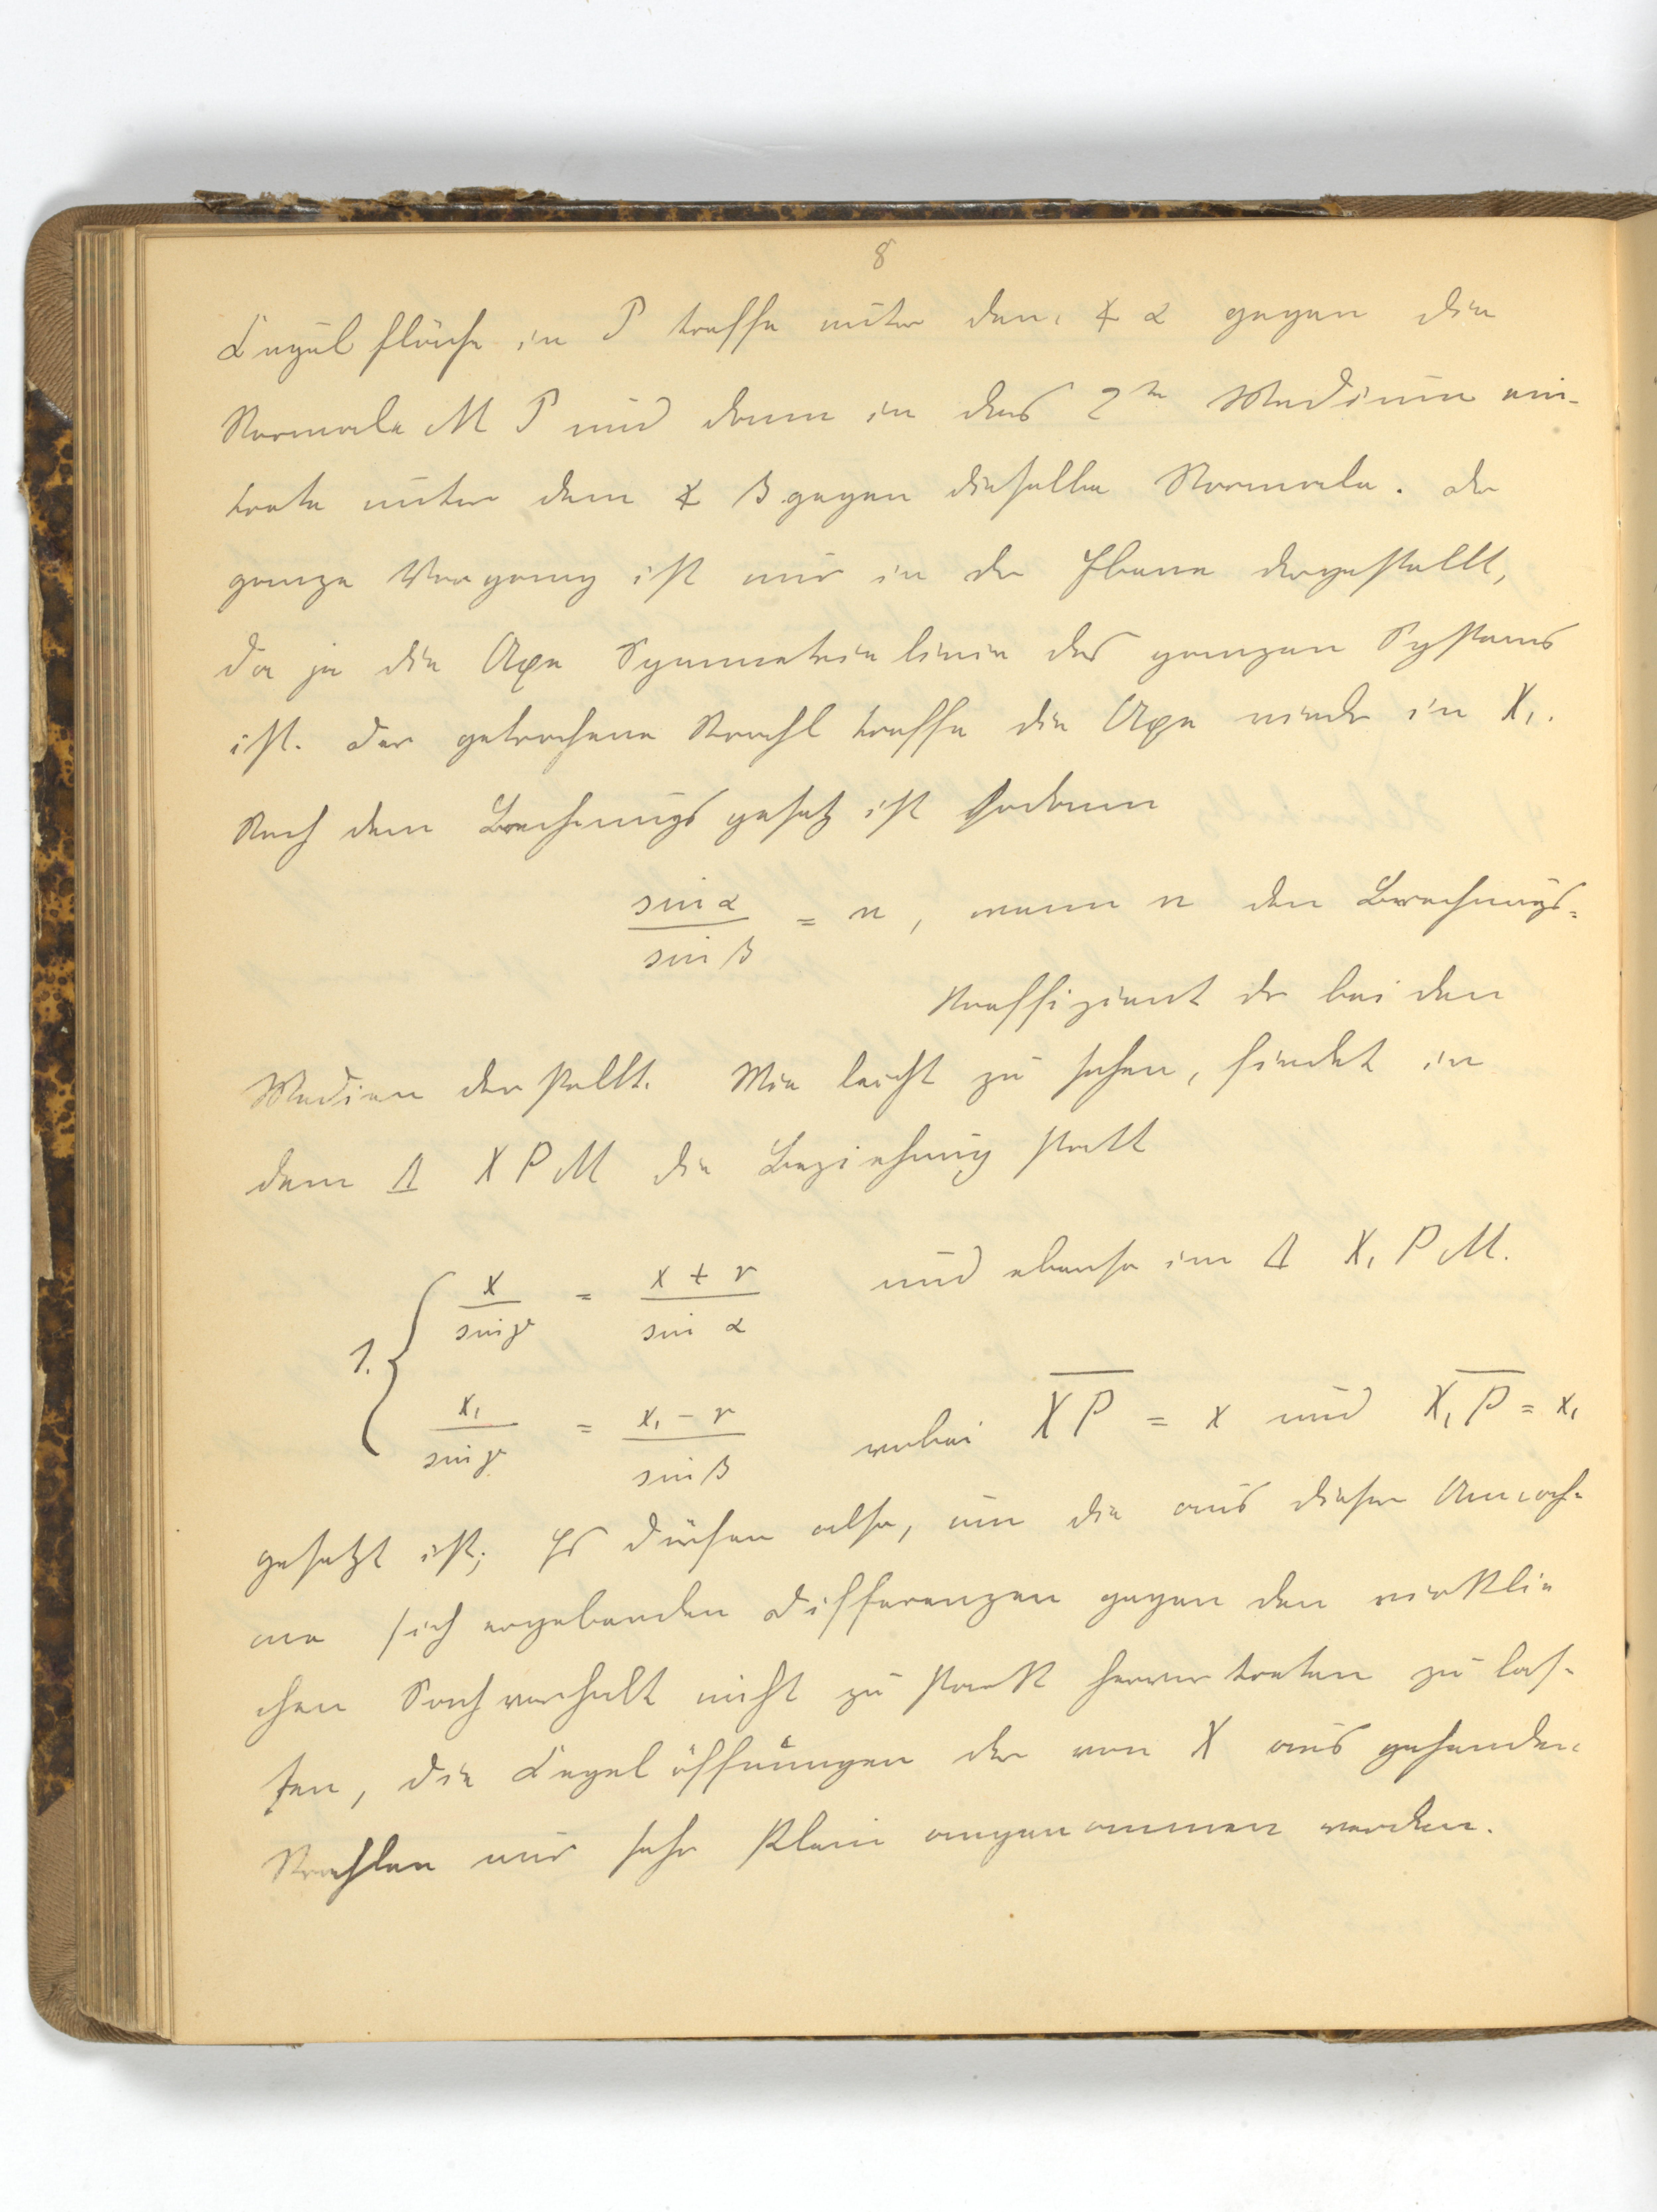 8
Kugelfläche in P treffe unter dem ∢ α gegen die
Normale M P und dann in das 2te Medium ein-
trete unter dem ∢ β gegen dieselbe Normale. Der
ganze Vorgang ist nur in der Ebene dargestellt,
da ja die Axe Symmetrielinie des ganzen Systems
ist. Der gebrochene Strahl treffe die Axe wieder in X₁.
Nach dem Brechungsgesetz ist sodann
sin α / sin β = n, wenn n den Brechungs-
koeffizient der beiden
Medien darstellt. Wie leicht zu sehen, findet in
dem Δ X P M die Beziehung statt
1. { x / sin γ = x + r / sin α und ebenso im Δ X₁ P M.
x₁ / sin γ = x₁ − r / sin β wobei X̅P̅ = x und X̅₁̅P̅ = x₁
gesetzt ist; Es dürfen also, um die aus dieser Annah-
me sich ergebenden Differenzen gegen den wirkli-
chen Sachverhalt nicht zu stark hervortreten zu las-
sen, die Kegelöffnungen der von X aus gesenden
Strahlen nur sehr klein angenommen werden.